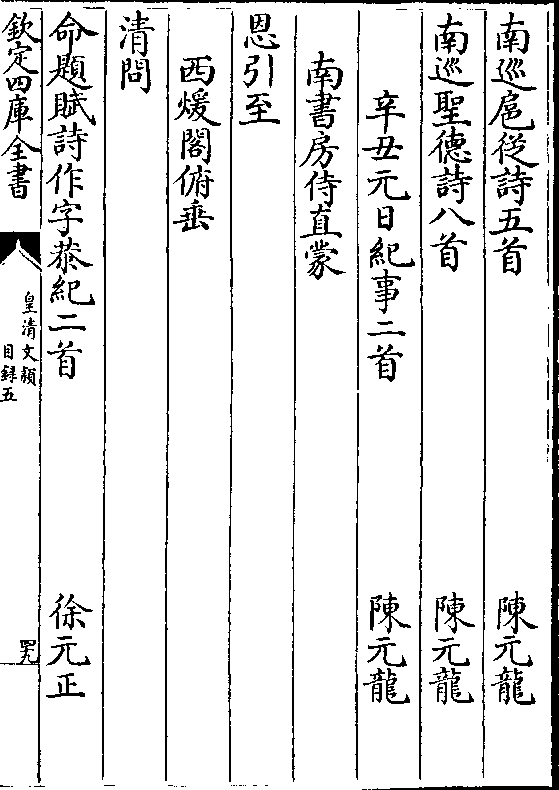 南巡扈從詩五首 陳元龍
南巡聖德詩八首 陳元龍
辛丑元日紀事二首 陳元龍
南書房侍直蒙
恩引至
西煖閣俯垂
清問
命題賦詩作字恭紀二首 徐元正
欽定四庫全書
皇清文穎
目録五
四九